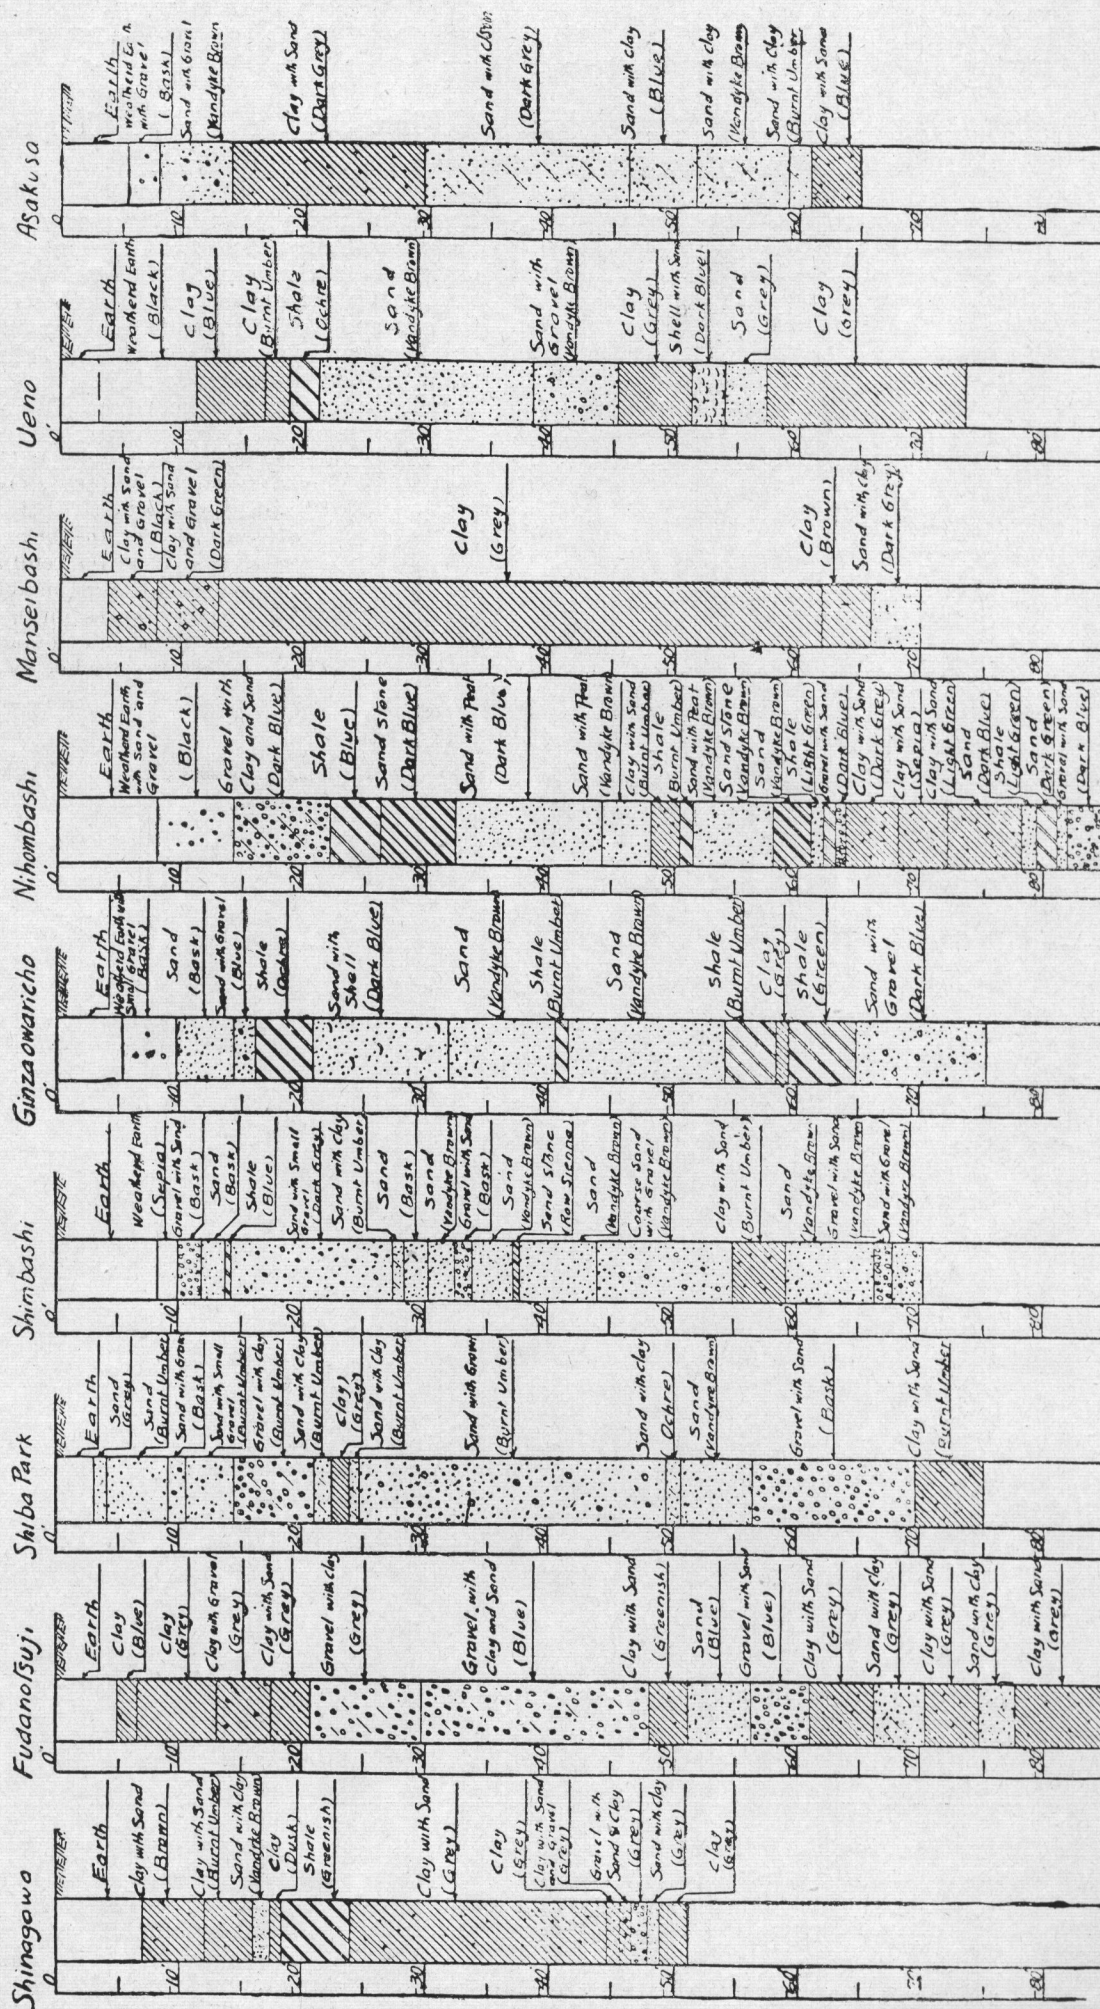 Asakusa
0'
-10'
-20'
-30'
-40'
-50'
-60'
-70'
Earth
with Gravel
(Bask)
Sand with Gravel
(Vandyke Brown
Clay with Sand
(Dark Grey)
(Dark Grey)
Sand with Clay
(Blue)
Sand with Clay
(Vandyke Brown
Sand with Clay
(Burnt Umber
Clay with Sand
(Blue)
Ueno
0'
-10'
-20'
-30'
-40'
-50'
-60'
-70'
-80'
Earth
Weatherd Earth
(Black)
Clay
(Blue)
Clay
(Burnt Umber)
Shale
(Ochre)
Sand
(Vandyke Brown)
Sand with
Gravel
(Vandyke Brown)
Clay
(Grey)
Shell with Sand
(Dark Blue)
Sand
(Grey)
Clay
(Grey)
Manseibashi
0'
-10'
-20'
-30'
-40'
-50'
-60'
-70'
-80'
Earth
Clay with Sand
and Gravel
(Black)
Clay with Sand
and Gravel
(Dark Green)
Clay
(Grey)
Clay
(Brown)
Sand with Clay
(Dark Grey)
Nihombashi
0'
-10'
-20'
-30'
-40'
-50'
-60'
-70'
-80'
Earth
Weatherd Earth
with Sand and
Gravel
(Black)
Gravel with
Clay and Sand
(Dark Blue)
Shale
(Blue)
Sand stone
(Dark Blue)
Sand with Peat
(Dark Blue)
Sand with Peat
(Vandyke Brown)
Clay with Sand
(Burnt Umber)
Shale
(Burnt Umber)
Sand with Peat
(Vandyke Brown)
Sand Stone
(Vandyke Brown)
Sand
(Vandyke Brown)
Shale
(Light Green)
Gravel with Sand
(Dark Blue)
Clay with Sand
(Dark Grey)
Clay with Sand
(Sepia)
Clay with Sand
(Light Green)
Sand
(Dark Blue)
Shale
(Light Green)
Sand
(Dark Green)
Gravel with Sand
(Dark Blue)
Ginzaowaricho
0'
-10'
-20'
-30'
-40'
-50'
-60'
-70'
-80'
Earth
Weatherd Earth with
Small Gravel
(Bask)
Sand
(Bask)
Sand with Gravel
(Blue)
Shale
(Ochre)
Sand with
Shell
(Dark Blue)
Sand
(Vandyke Brown)
Shale
(Burnt Umber)
Sand
(Vandyke Brown)
Shale
(Burnt Umber)
Clay
(Grey)
Shale
(Green)
Sand with
Gravel
(Dark Blue)
Shimbashi
0'
-10'
-20'
-30'
-40'
-50'
-60'
-70'
-80'
Earth
Weatherd Earth
(Sepia)
Gravel with Sand
(Bask)
Sand
(Bask)
Shale
(Blue)
Sand with Small
Gravel
(Dark Grey)
Sand with Clay
(Burnt Umber)
Sand
(Bask)
Sand
(Vandyke Brown)
Gravel with Sand
(Bask)
Sand
(Vandyke Brown)
Sand Stone
(Row Sienna)
Sand
(Vandyke Brown)
Coarse Sand
with Gravel
(Vandyke Brown)
Clay with Sand
(Burnt Umber)
Sand
(Vandyke Brown)
Gravel with Sand
(Vandyke Brown)
Sand with Gravel
(Vandyke Brown)
Shiba Park
0'
-10'
-20'
-30'
-40'
-50'
-60'
-70'
-80'
Earth
Sand
(Grey)
Sand
(Burnt Umber)
Sand with
(Bask)
Sand with Small
Gravel
(Burnt Umber)
Gravel with Clay
(Burnt Umber)
Sand with Clay
(Burnt Umber)
Clay
(Grey)
Sand with Clay
(Burnt Umber)
Sand with
(Burnt Umber)
Sand with Clay
(Ochre)
Sand
(Vandyke Brown)
Gravel with Sand
(Bask)
Clay with Sand
(Burnt Umber
Fudanotsuji
0'
-10'
-20'
-30'
-40'
-50'
-60'
-70'
-80'
Earth
Clay
(Blue)
Clay
(Grey)
Clay with Gravel
(Grey)
Clay with Sand
(Grey)
Gravel with Clay
(Grey)
Gravel with
Clay and Sand
(Blue)
Clay with Sand
(Greenish)
Sand
(Blue)
Gravel with Sand
(Blue)
Clay with Sand
(Grey)
Sand with Clay
(Grey)
Clay with Sand
(Grey)
Sand with Clay
(Grey)
Clay with Sand
(Grey)
Shinagawa
0'
-10'
-20'
-30'
-40'
-50'
-60'
-70'
-80'
Earth
Clay with Sand
(Brown)
Clay with Sand
(Burnt Umber)
Sand with Clay
(Vandyke Brown)
Clay
(Dusk)
Shale
(Greenish)
Clay with Sand
(Grey)
Clay
(Grey)
Clay with Sand
and Gravel
(Grey)
Gravel with
Sand & Clay
(Grey)
Sand with Clay
(Grey)
Clay
(Grey)